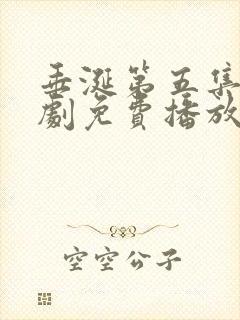 垂涎第五集
劇免費播放
空空公子